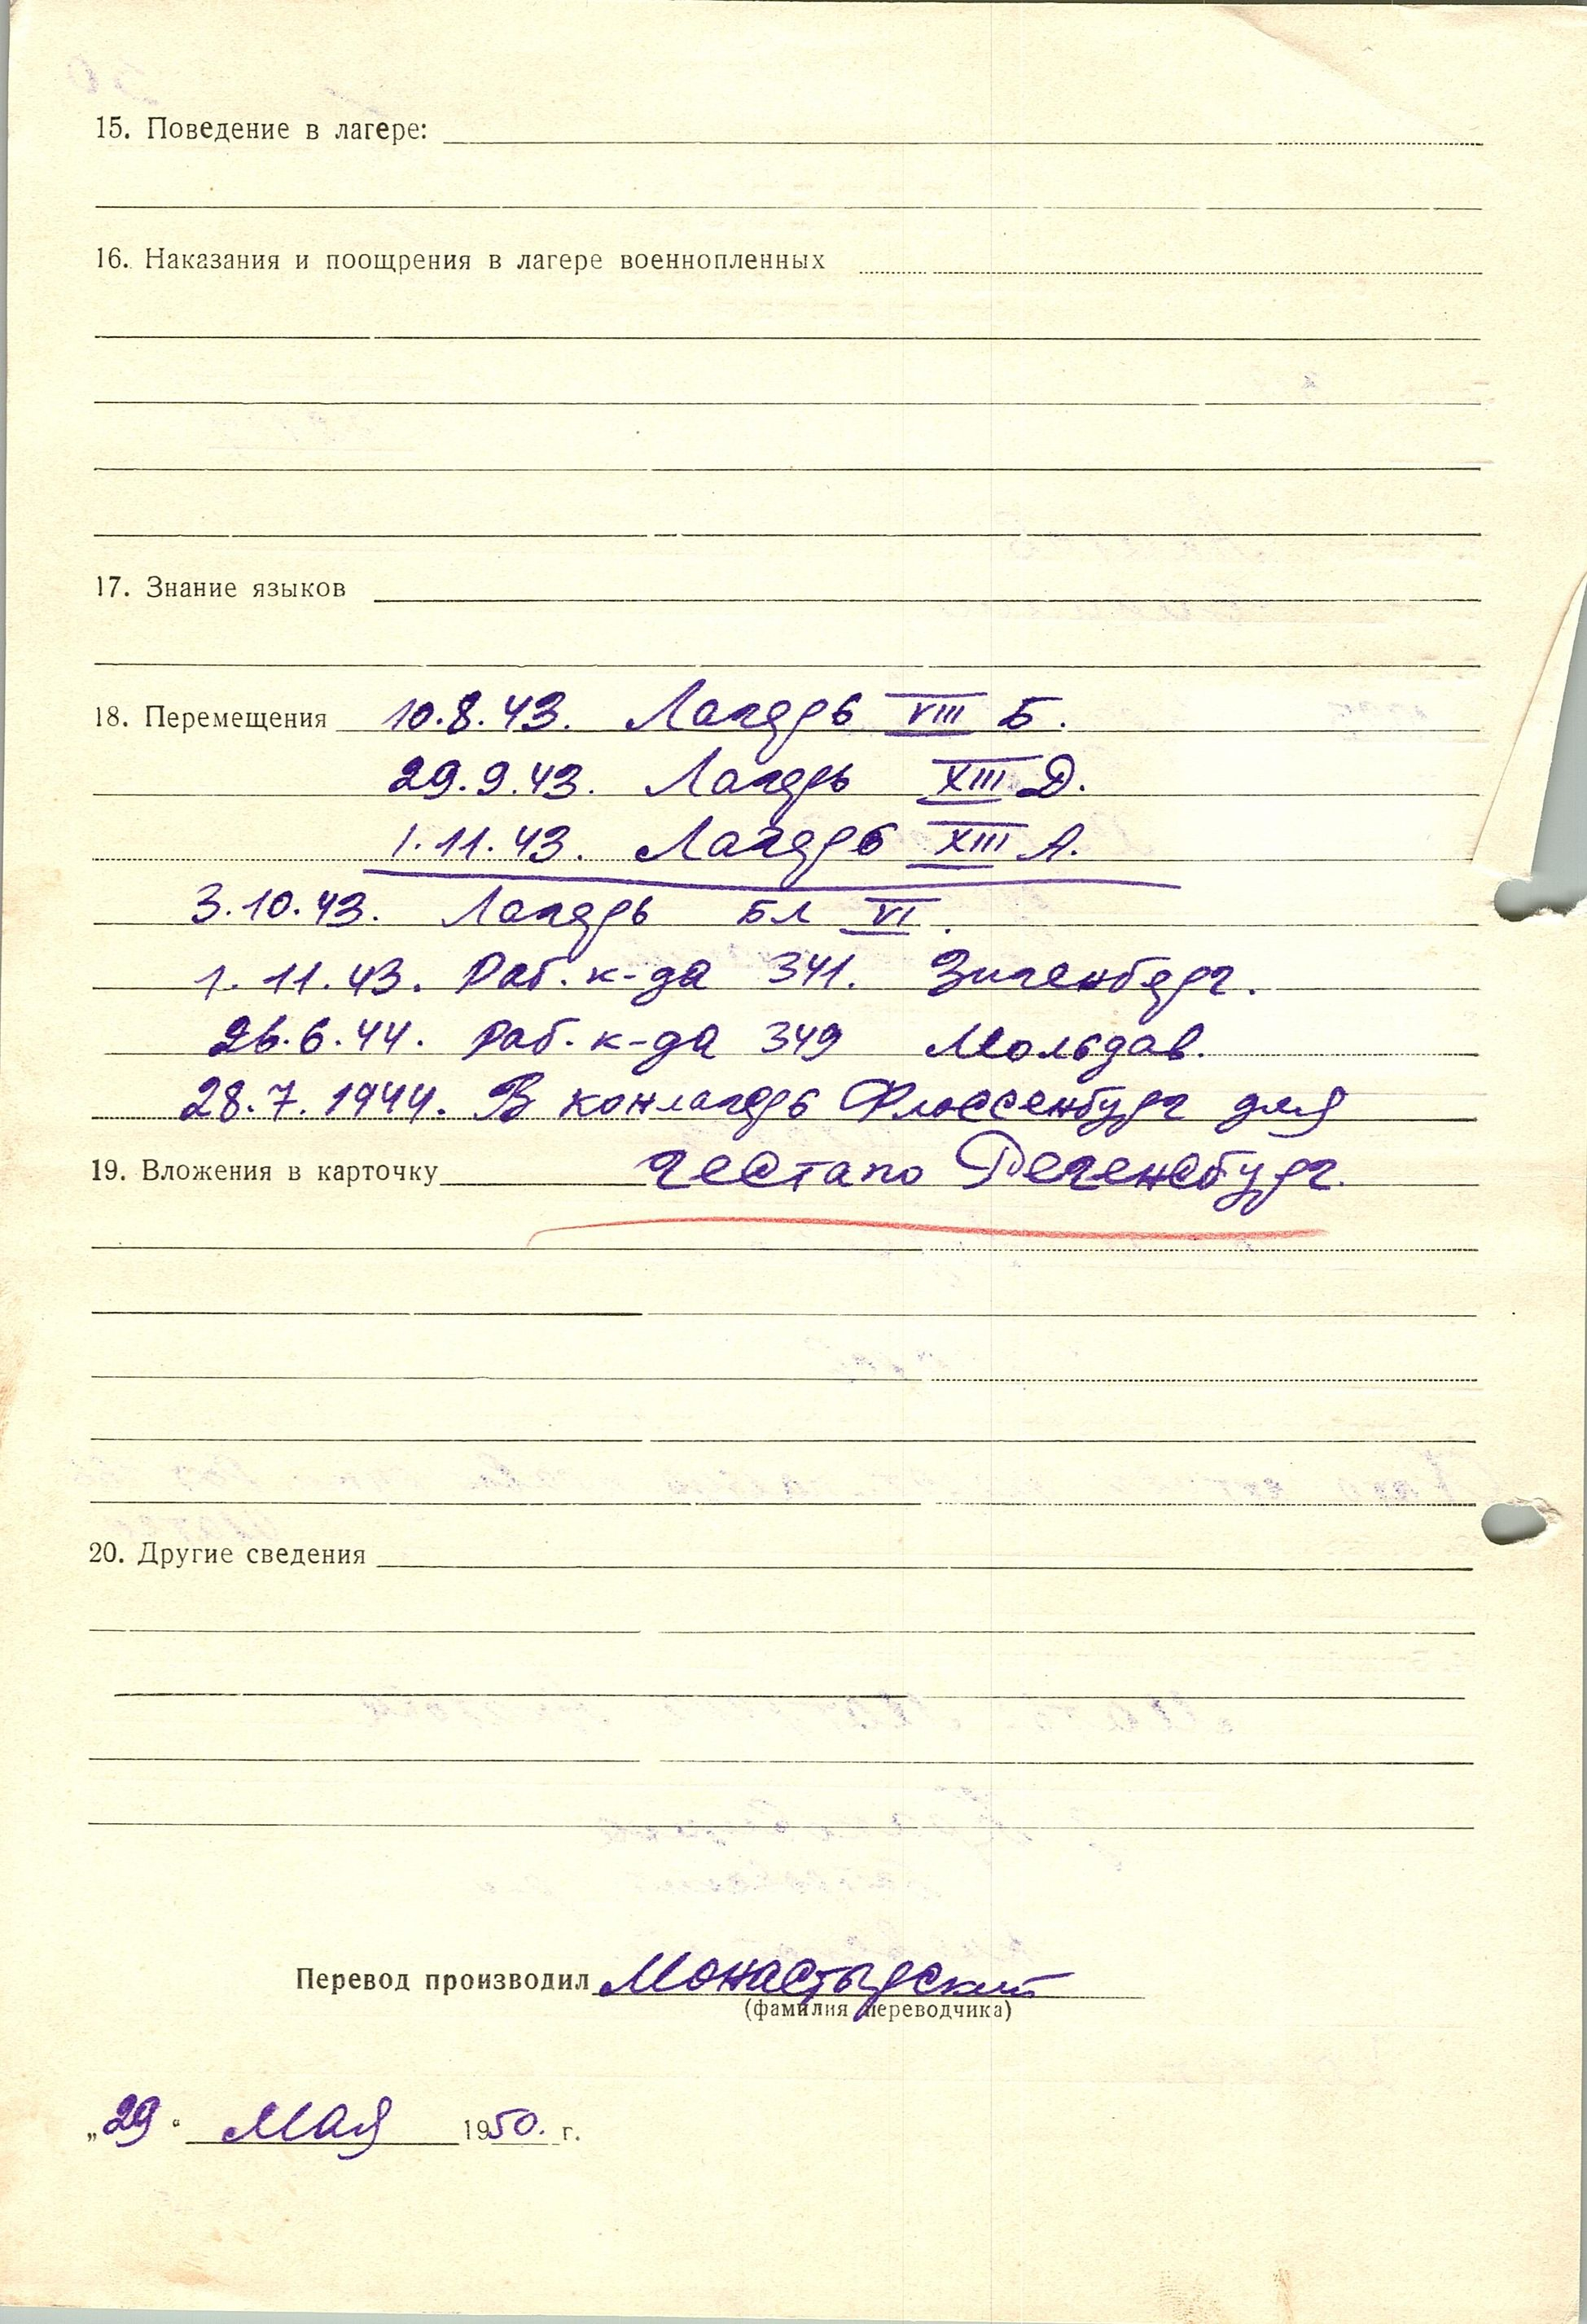 15. Поведение в лагере:
16. Наказания и поощрения в лагере военнопленных
17. Знание языков
18. Перемещения 10.8.43. Лагерь VIII Б.
29.9.43. Лагерь XIII Д.
1.11.43. Лагерь XIII А.
3.10.43. Лагерь БЛ VI.
1.11.43. Раб. к-да 341. Зигенберг.
26.6.44. Раб. к-да 349 Мользав.
28.7.1944. В конлагерь Флоссенбург для
19. Вложения в карточку гестапо Регенсбург.
20. Другие сведения
Перевод производил Монастырский
(фамилия переводчика)
„29" мая 1950. г.